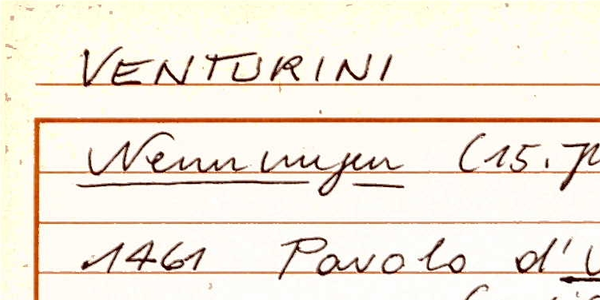 VENTURINI
Nennungen (15.
1461 Pavolo d'